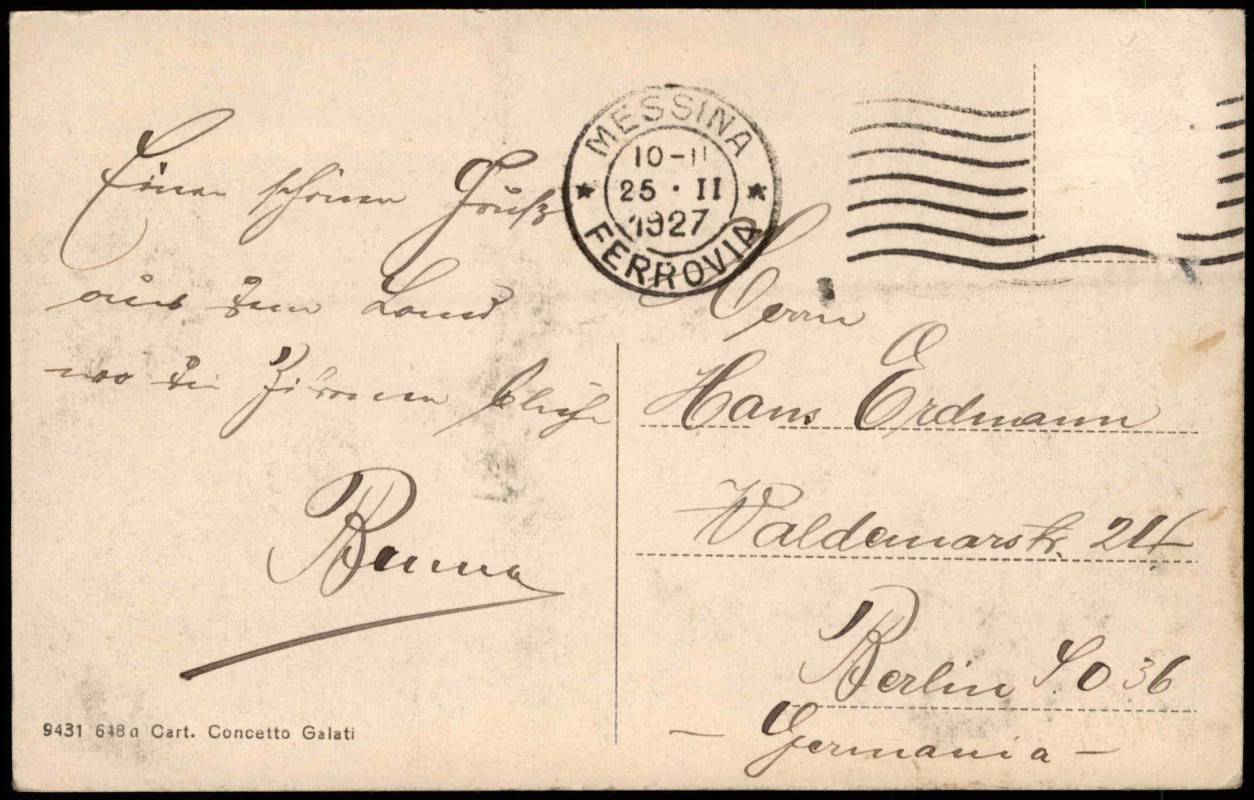 MESSINA
10-11
25 · II
1927
FERROVIA
Einen schönen Gruß
aus dem Land
wo die Zitronen blühn
Herrn
Hans Erdmann
Waldemarstr.
Berlin S.O 36
- Germania -
9431 618a Cart. Concetto Galati